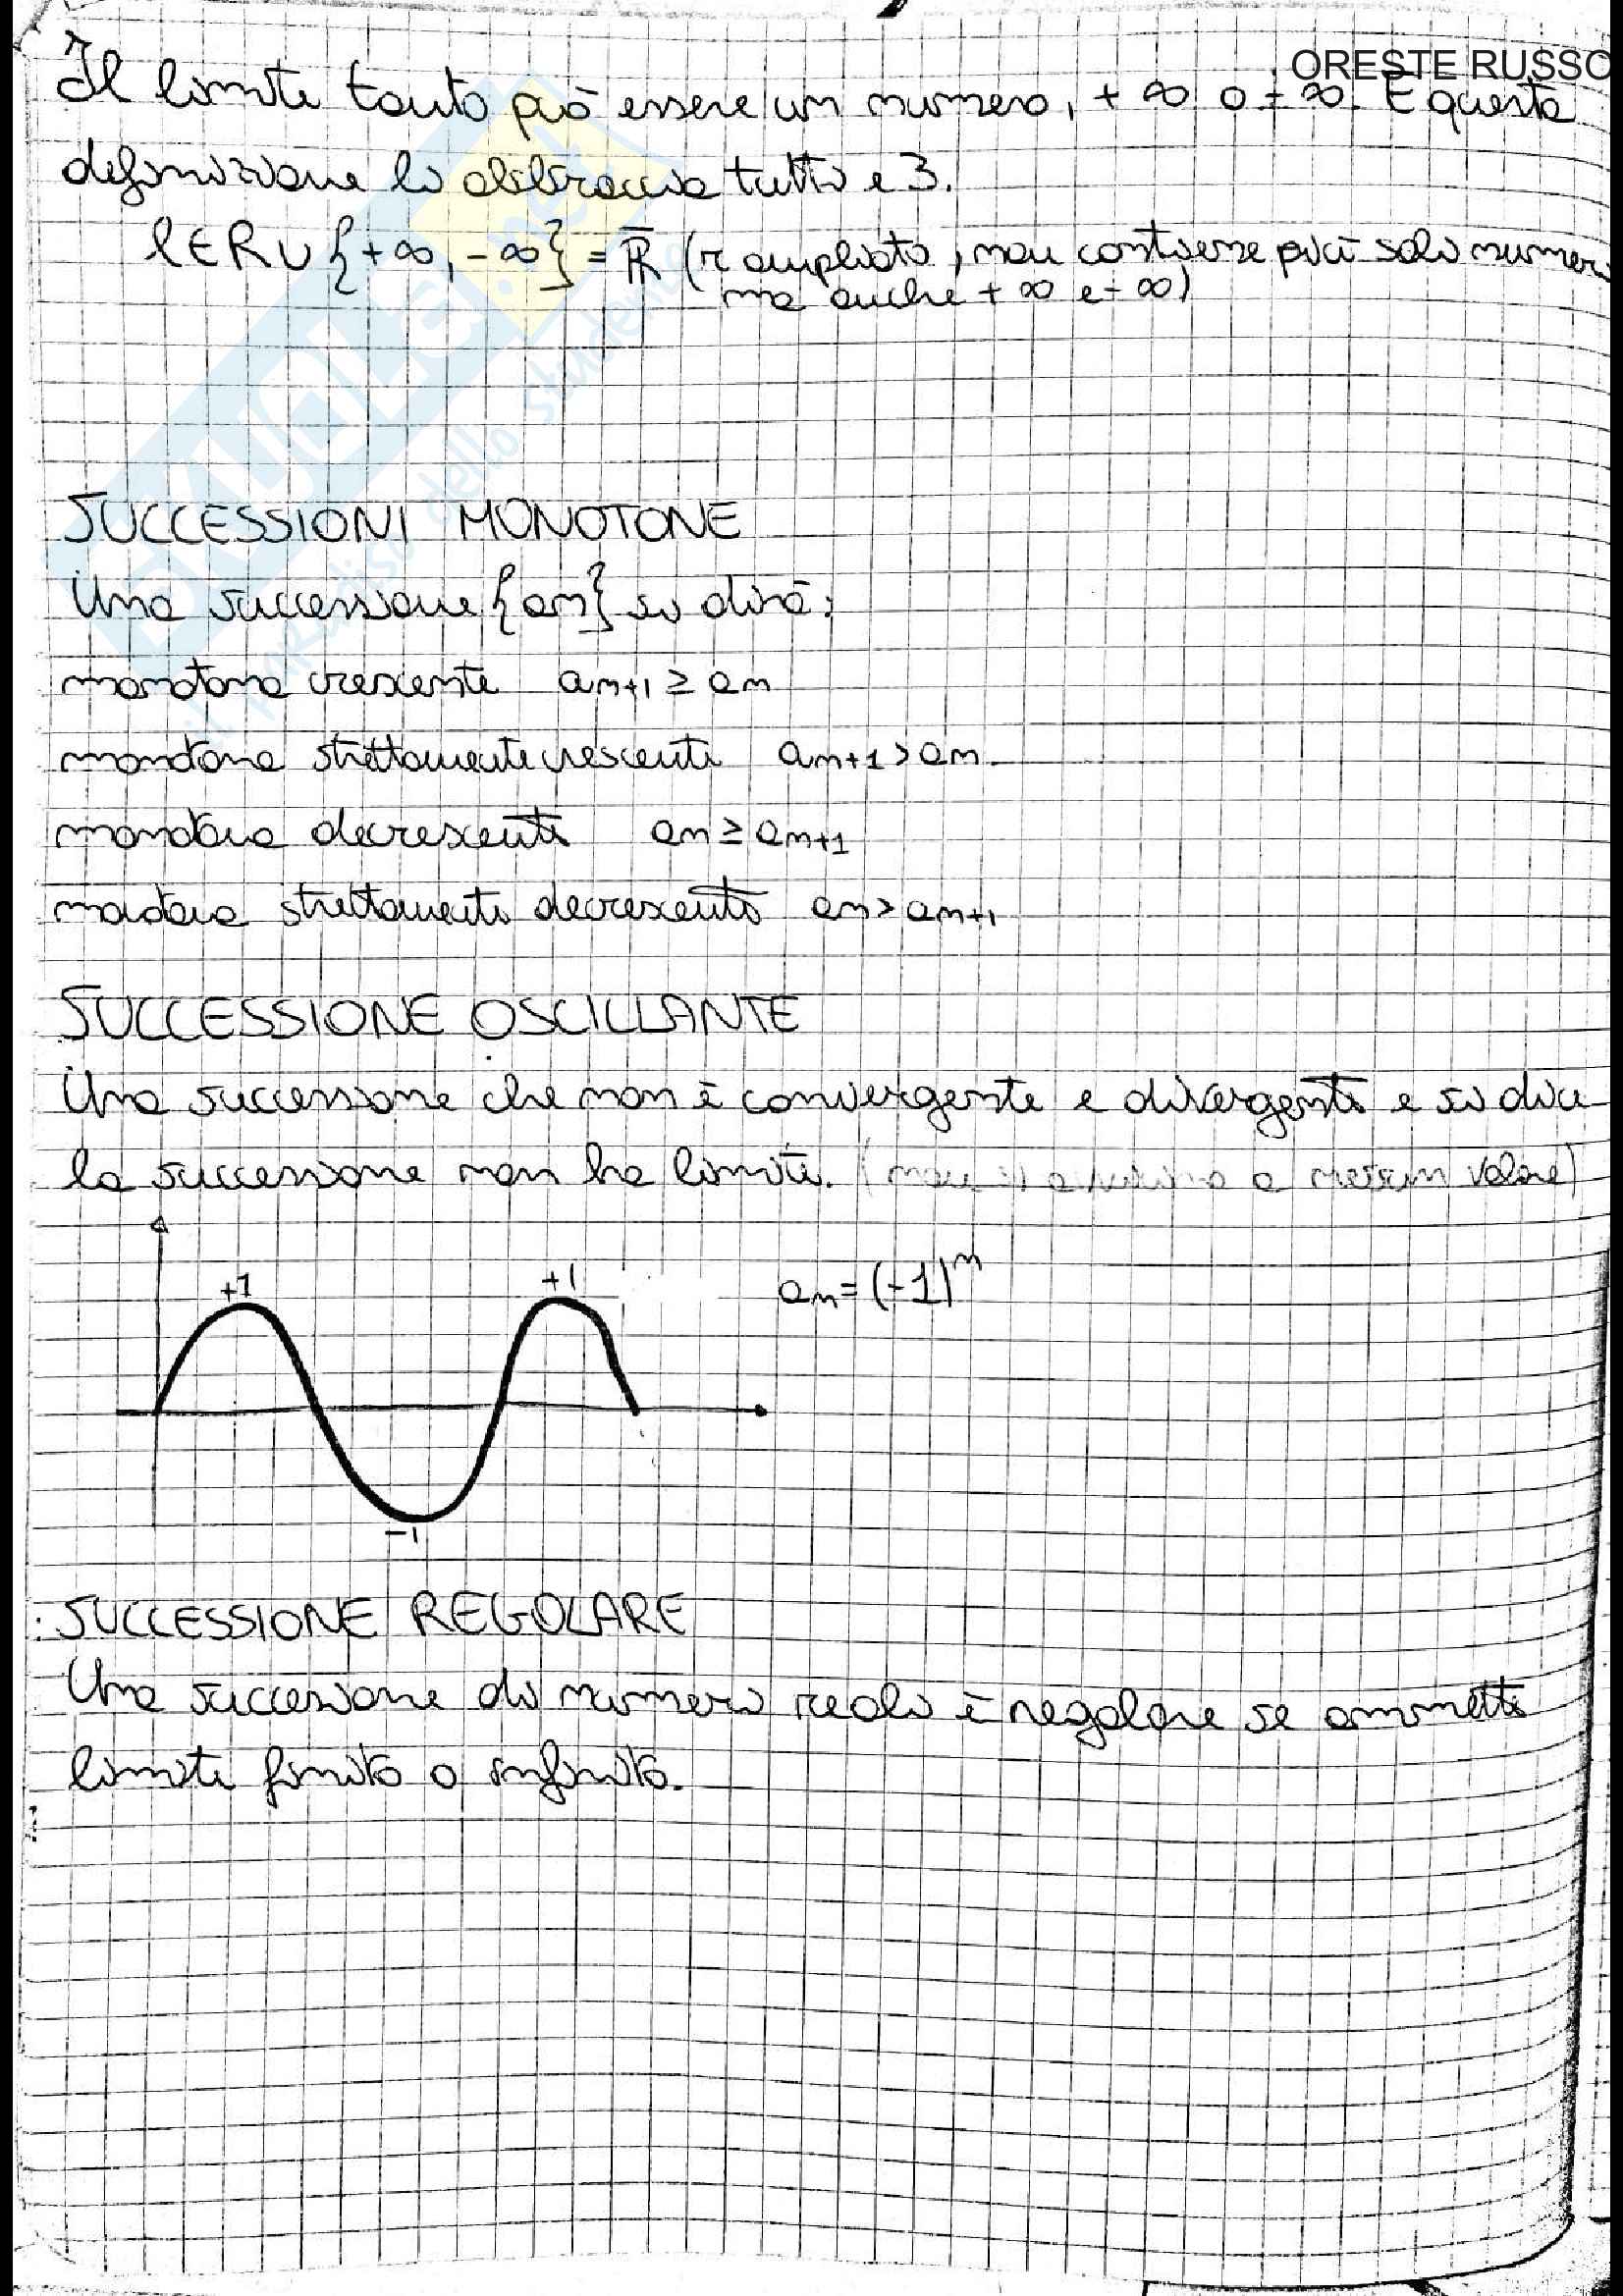 ORESTE RUSSO
Il limite tanto può essere un numero, +∞ o -∞. E questa
definizione li abbraccia tutti e 3.
l ∈ R ∪ {+∞, -∞} = R̅ (r ampliato, non contiene più solo numeri
ma anche +∞ e -∞)
SUCCESSIONI MONOTONE
Una successione {an} si dirà:
monotona crescente an+1 ≥ an
monotona strettamente crescente an+1 > an
monotona decrescente an ≥ an+1
monotona strettamente decrescente an > an+1
SUCCESSIONE OSCILLANTE
Una successione che non è convergente e divergente e si dice
la successione non ha limite. (non si avvicina a nessun valore)
+1 +1 an = (-1)^n
-1
SUCCESSIONE REGOLARE
Una successione di numeri reali è regolare se ammette
limite finito o infinito.